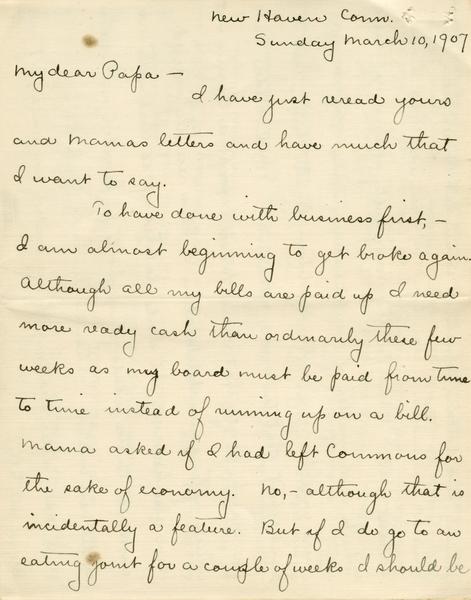 New Haven Conn.
Sunday March 10, 1907
My dear Papa —
I have just reread yours
and Mamas letters and have much that
I want to say.
To have done with business first, -
I am almost beginning to get broke again.
Although all my bills are paid up I need
more ready cash than ordinarily these few
weeks as my board must be paid from time
to time instead of running up on a bill.
Mama asked if I had left Commons for
the sake of economy. No, - although that is
incidentally a feature. But if I do go to an
eating joint for a couple of weeks I should be